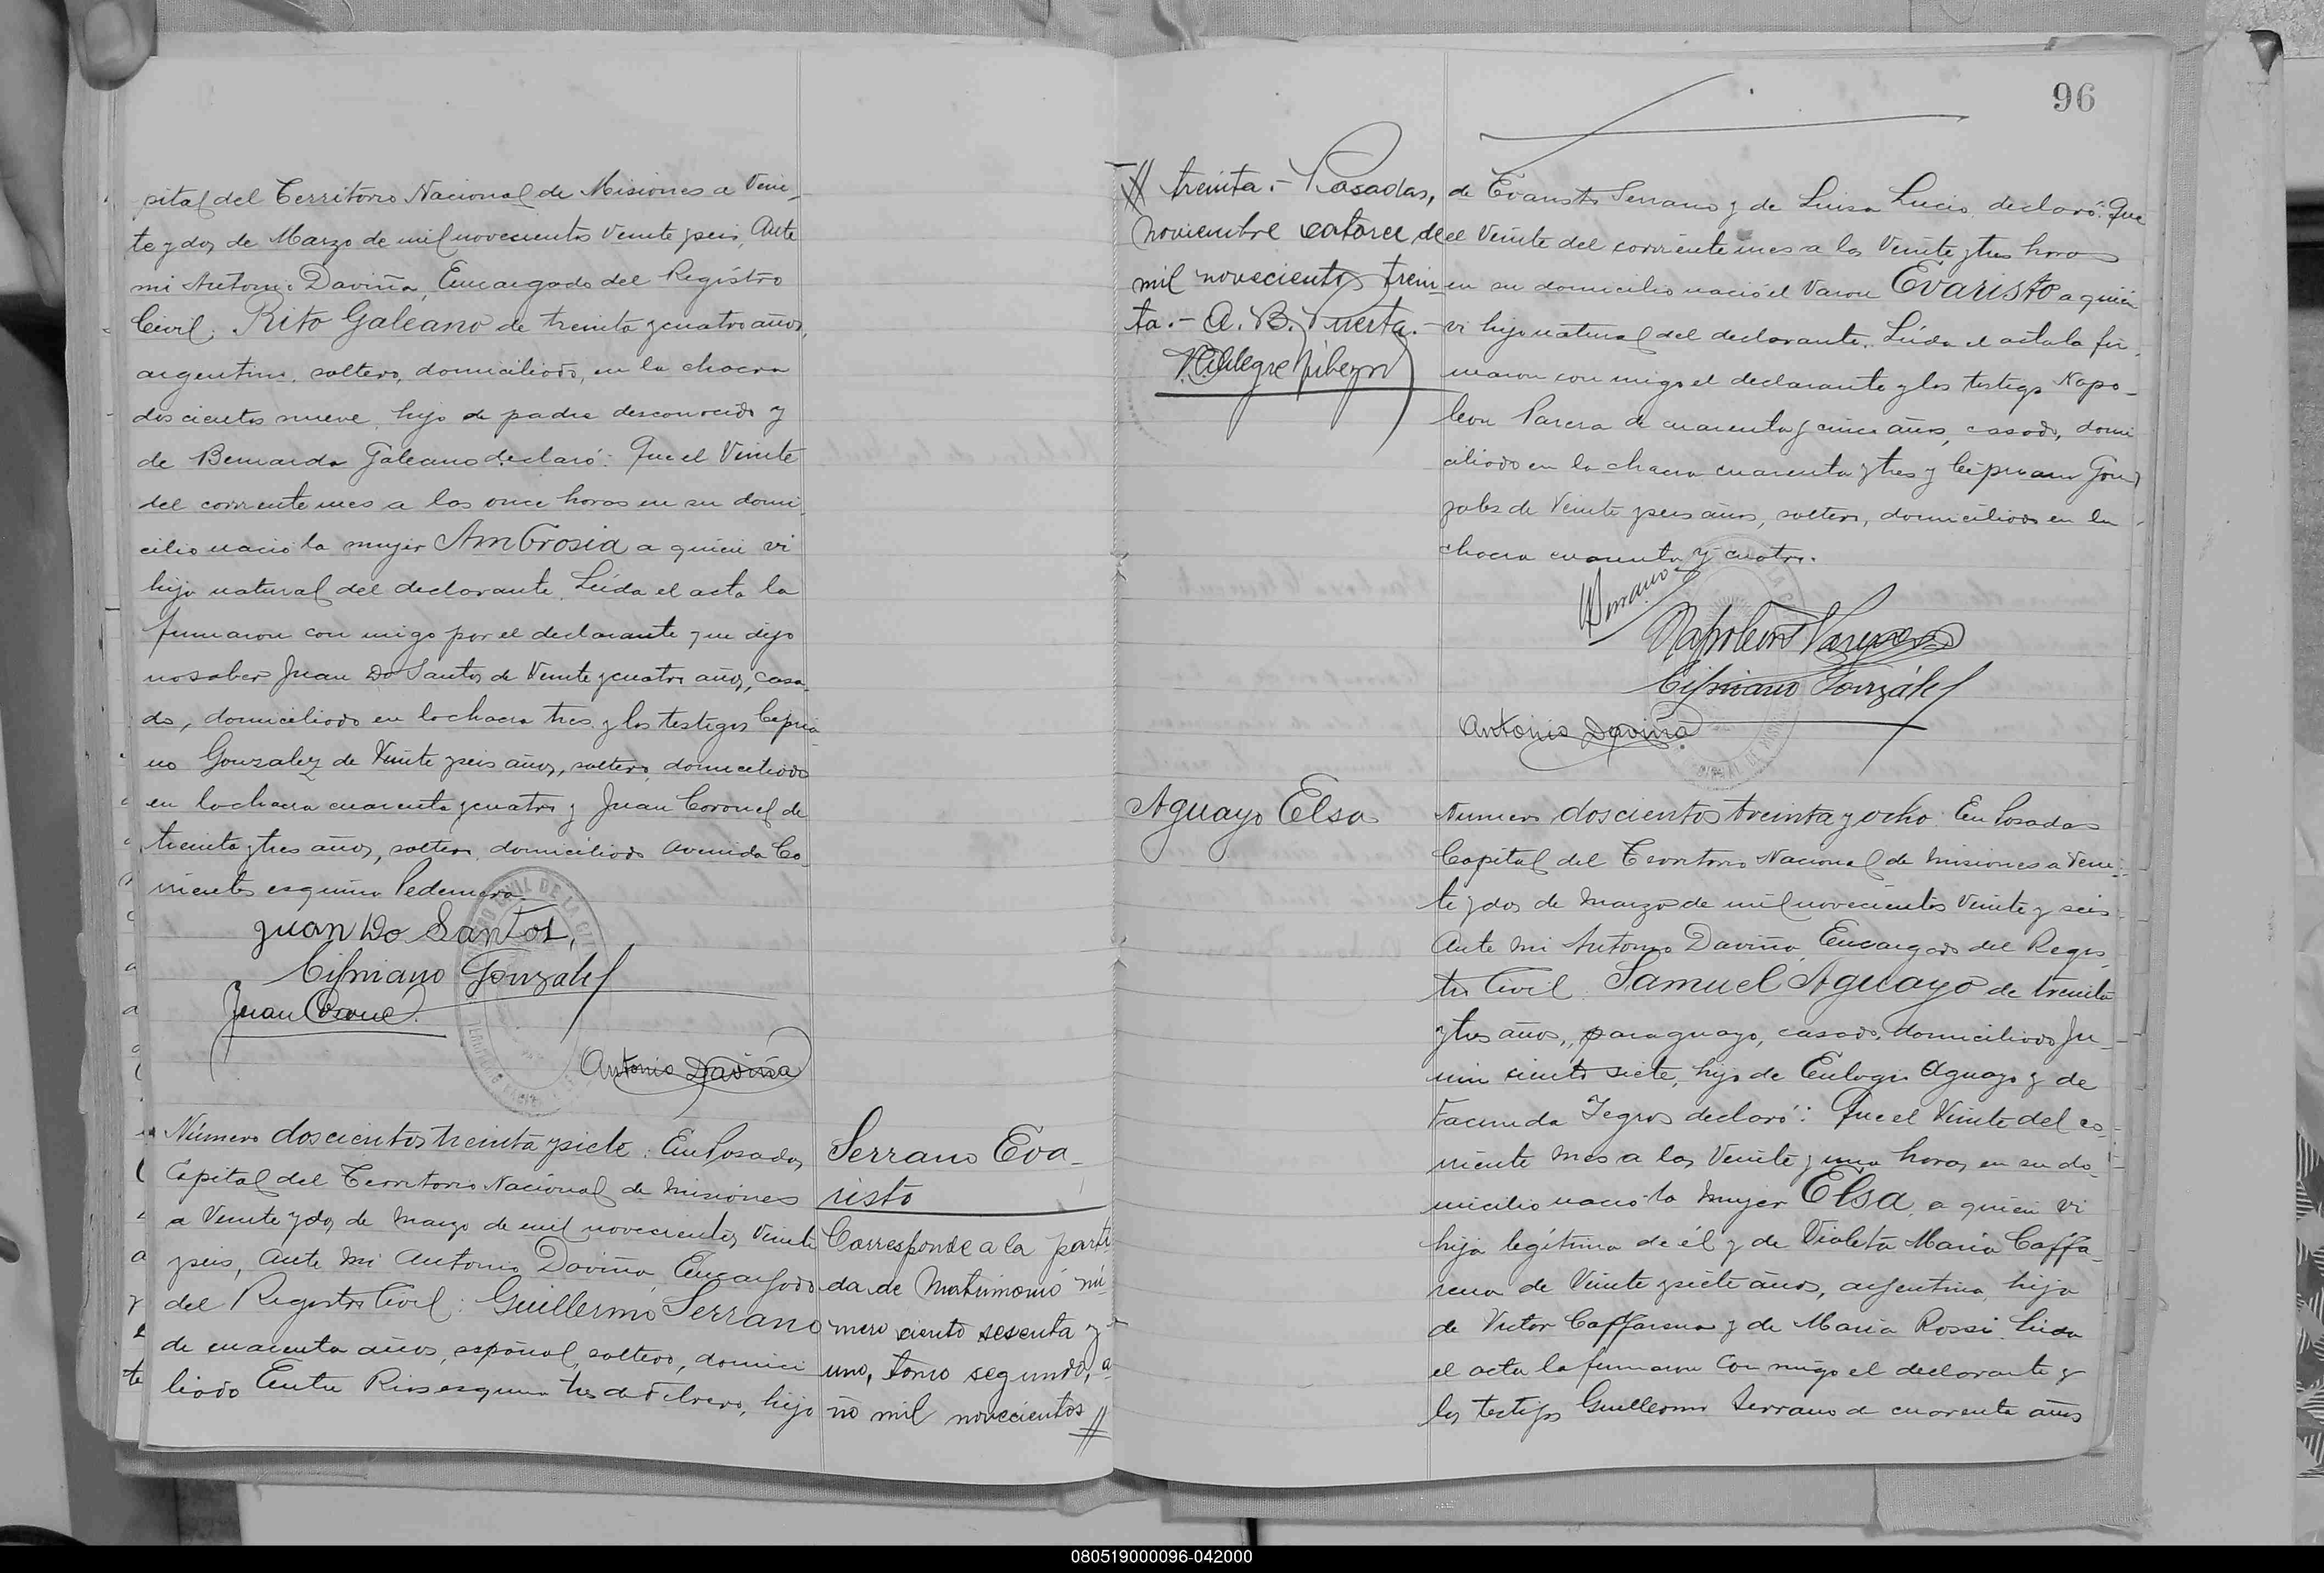 pital del Territorio Nacional de Misiones a Vein-
te y dos de Marzo de mil novecientos Veinte y seis, Ante
mi Antonio Daviña, Encargado del Registro
Civil: Rito Galeano de treinta y cuatro años,
argentino, soltero, domiciliado, en la chacra
doscientos nueve, hijo de padre desconocido y
de Bernarda Galeano declaró: Que el Veinte
del corriente mes a las once horas en su domi-
cilio nació la mujer Ambrosia a quien vi
hija natural del declarante. Leída el acta la
firmaron con migo por el declarante que dijo
no saber Juan Do Santos de Veinte y cuatro años, casa-
do, domiciliado en la chacra tres y los testigos Cipria-
no Gonzalez de Veinte y seis años, soltero, domiciliado
en la chacra cuarenta y cuatro y Juan Coronel de
treinta y tres años, soltero, domiciliado Avenida Co-
rrientes esquina Pedernera.
Juan Do Santos,
Cipriano Gonzalez
Juan Coronel
Antonio Daviña
Número doscientos treinta y siete: En Posadas
Capital del Territorio Nacional de Misiones
a Veinte y dos de Marzo de mil novecientos Veinte
y seis, Ante mi Antonio Daviña, Encargado
del Registro Civil: Guillermo Serrano
de cuarenta años, español, soltero, domici-
liado Entre Rios esquina tres de Febrero, hijo
Serrano Eva-
risto
Corresponde a la parti-
da de Matrimonio nú-
mero ciento sesenta y
uno, tomo segundo, a-
ño mil novecientos //
96
// treinta.- Posadas,
Noviembre catorce de
mil novecientos trein-
ta.- A. B. Puerta.-
de Evaristo Serrano y de Luisa Lucio, declaró: Que
el Veinte del corriente mes a las Veinte y tres horas
en su domicilio nació el Varon Evaristo a quien
vi hijo natural del declarante. Leída el acta la fir-
maron con migo el declarante y los testigos Napo-
leon Parera de cuarenta y cinco años, casado, domi-
ciliado en la chacra cuarenta y tres y Cipriano Gon-
zalez de Veinte y seis años, soltero, domiciliado en la
chacra cuarenta y cuatro.
Serrano
Napoleon Parera
Cipriano Gonzalez
Antonio Daviña
Aguayo Elsa
Numero doscientos treinta y ocho: En Posadas
Capital del Territorio Nacional de Misiones a Vein-
te y dos de Marzo de mil novecientos Veinte y seis
Ante mi Antonio Daviña, Encargado del Regis-
tro Civil: Samuel Aguayo de treinta
y tres años, paraguayo, casado, domiciliado Ju-
nin ciento siete, hijo de Eulogio Aguayo y de
Facunda Yegros declaró: Que el Veinte del co-
rriente mes a las Veinte y una horas en su do-
micilio nació la mujer Elsa, a quien vi
hija legítima de él y de Violeta María Caffa-
rena de Veinte y siete años, argentina, hija
de Victor Caffarena y de María Rossi. Leída
el acta la firmaron con migo el declarante y
los testigos Guillermo Serrano de cuarenta años
080519000096-042000